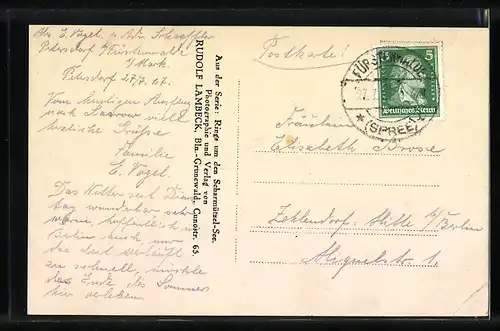 Abs. E. Vogel. p. Adr. Schaeffler
Petersdorf b/Fürstenwalde
i/Mark.
Petersdorf 27/7. 07.
Vom heutigen Ausflug
nach Saarow viel
herzliche Grüsse
Familie
E. Vogel.
Das Wetter seit Diens
tag wunderbar
hoffentlich in
Berlin auch nur
die Zeit verläuft
zu schnell, möchte
das Ende des Sommers
hier verleben
Aus der Serie: Rings um den Scharmützel-See.
Photographie und Verlag von
RUDOLF LAMBECK, Bln.-Grunewald, Cunostr. 65.
Postkarte!
FÜRSTENWALDE
(SPREE)
5
Deutsches Reich
Fräulein
Elisabeth Brose
Zehlendorf-Mitte b/Berlin